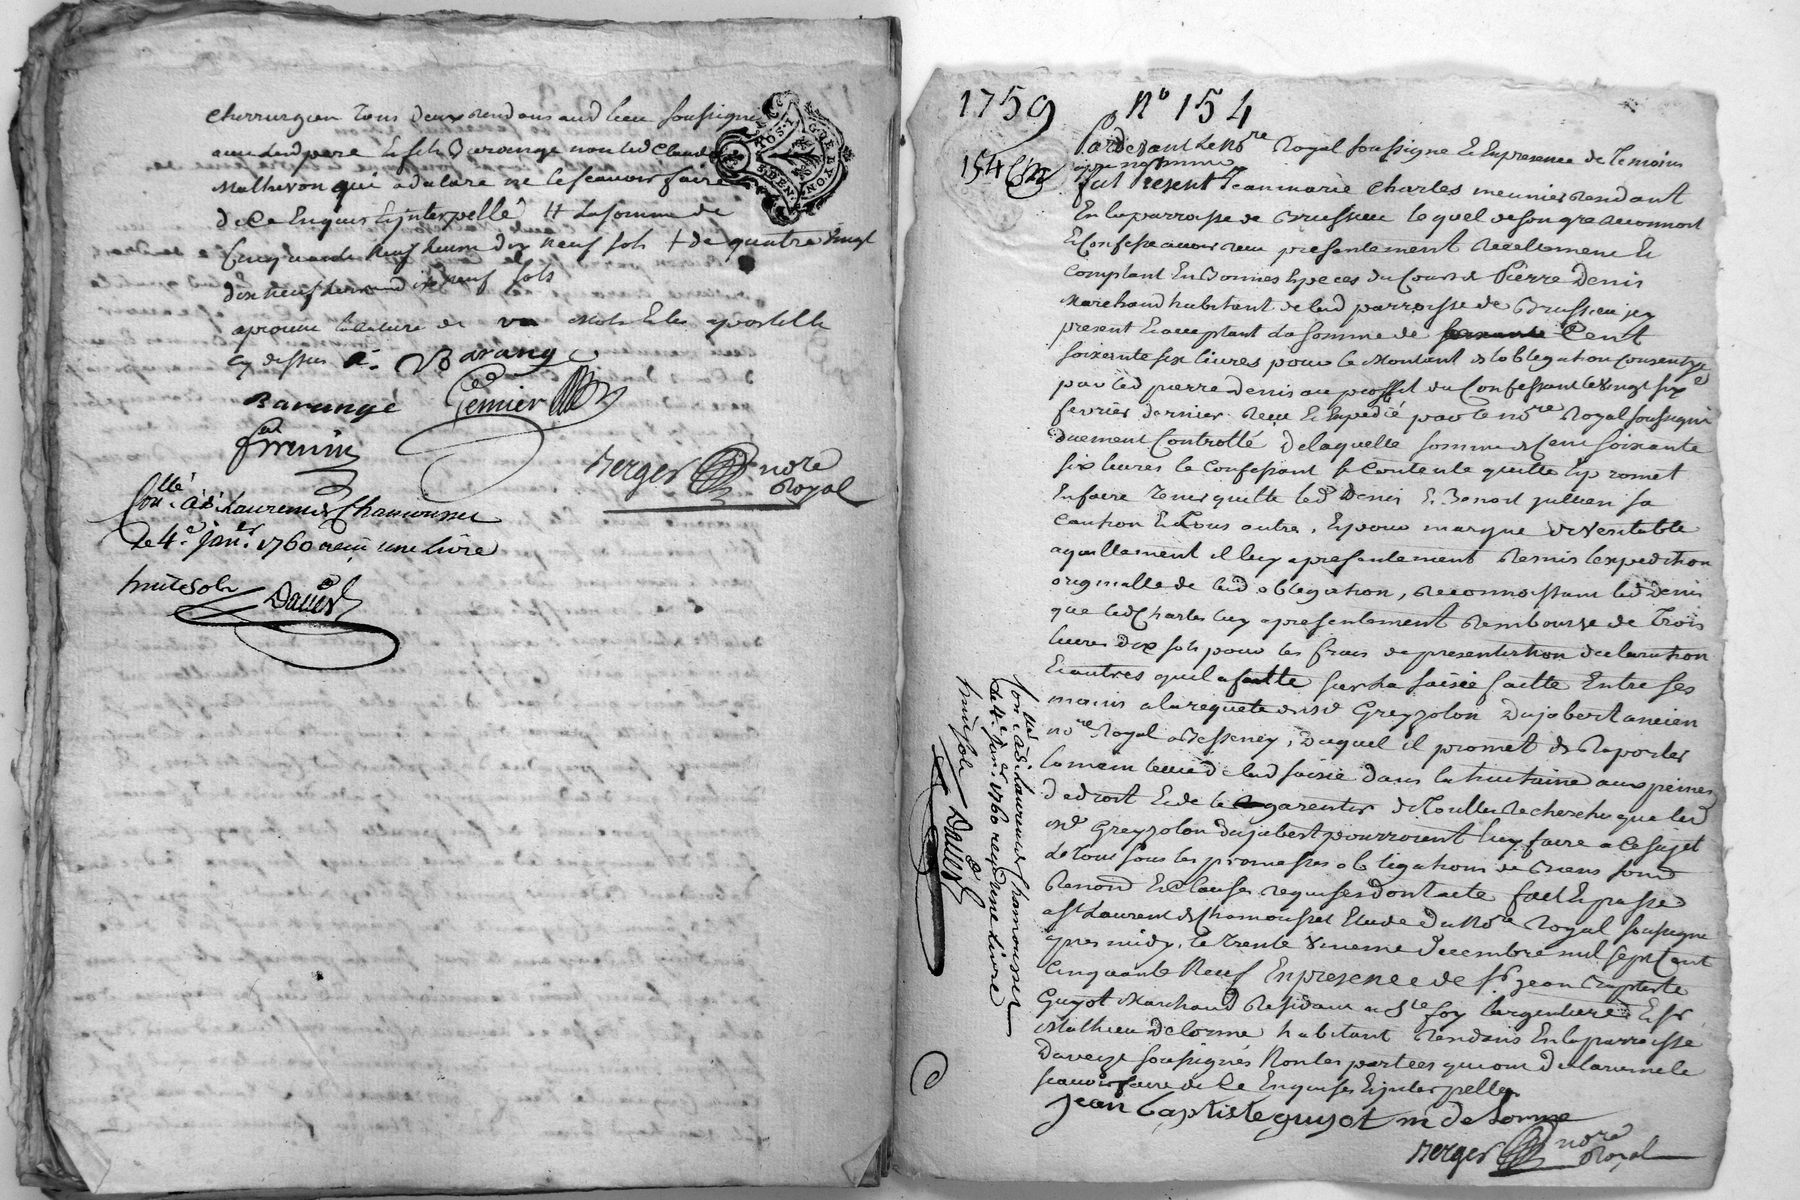 cherrurgien tous deux rendans aud lieu soussigne
avec led pere et fils Barange non led Claude
Matheron qui a declare ne le scavoir faire
de ce Enquis Et jnterpellé # La somme de
Cinquante neuf livres dix neuf sols + de quatre vingt
dix neuf livres dixneuf sols
aprouvé la rature de un mots Et les apostille
cy dessus
Barange
Barange
Berger nore
Royal
Conllé à St Laurent de Chamousset
le 4e janer 1760 reçu une livre
huit sols
GDE LYON
1759 No 154
154
Pardevant Le Nore Royal soussigne Et En presence de Temoins
fut Present Jean marie Charles meunier rendant
En la parroisse de Brussieu lequel de son gré a reconnont
Et Confesse avoir reçu presentement reellement Et
comptant En Bonnes Especes du Cours de Pierre Denis
Marchand habitant de lad parroisse de Brussieu jcy
present Et acceptant La somme de Cent
soixente six livres pour le Montant de lobligation Consentye
par led pierre Denis au proffit du Confessant le vingt six
fevrier dernier reçue Et Expedié par le nore Royal soussigné
duement Controllé De laquelle somme de Cent soixante
six livres le Confessant se Contente quitte Et promet
En faire tenir quitte led Denis Et Benoit jullien sa
caution Et Tous autres, Et pour marque de veritable
aquittement il luy a presentement Remis lexpedition
originalle de lad obligation, reconnoissant led Denis
que led Charles luy a presentement Rembourse de Trois
livres dix sols pour les frais de presentation declaration
Et autres quil a faitte sur La saisie faitte Entre ses
mains a la requete de sr Greyzolon Dujabert ancien
nore Royal a Bessenay, Duquel il promet de Raporter
la main levée de lad saisie dans la huitaine aux peines
de droit Et de le garentir de Toutte Recherche que led
sr Greyzolon dujabert pourroient luy faire a ce sujet
Le tout sous les promesses obligations de Biens soumd
Renond Et Clauses requises dont acte fait Et passe
a St Laurent de Chamousset Etude du Nore Royal soussigne
apres midy, le Trente unieme Decembre mil sept Cent
Cinquante Neuf En presence de sr jean Baptiste
Guyot Marchand Residant a Ste foy largentiere Et sr
Mathieu Delorme habitant Rendans En la parroisse
Daveize soussignés Non les parties qui ont Declaré ne le
scavoir faire de Ce Enquises Et jnterpellés
jean baptiste guyot m delorme
Berger nore
Royal
Conllé à St Laurent de Chamousset
le 4e janer 1760 reçu une livre
huit sols